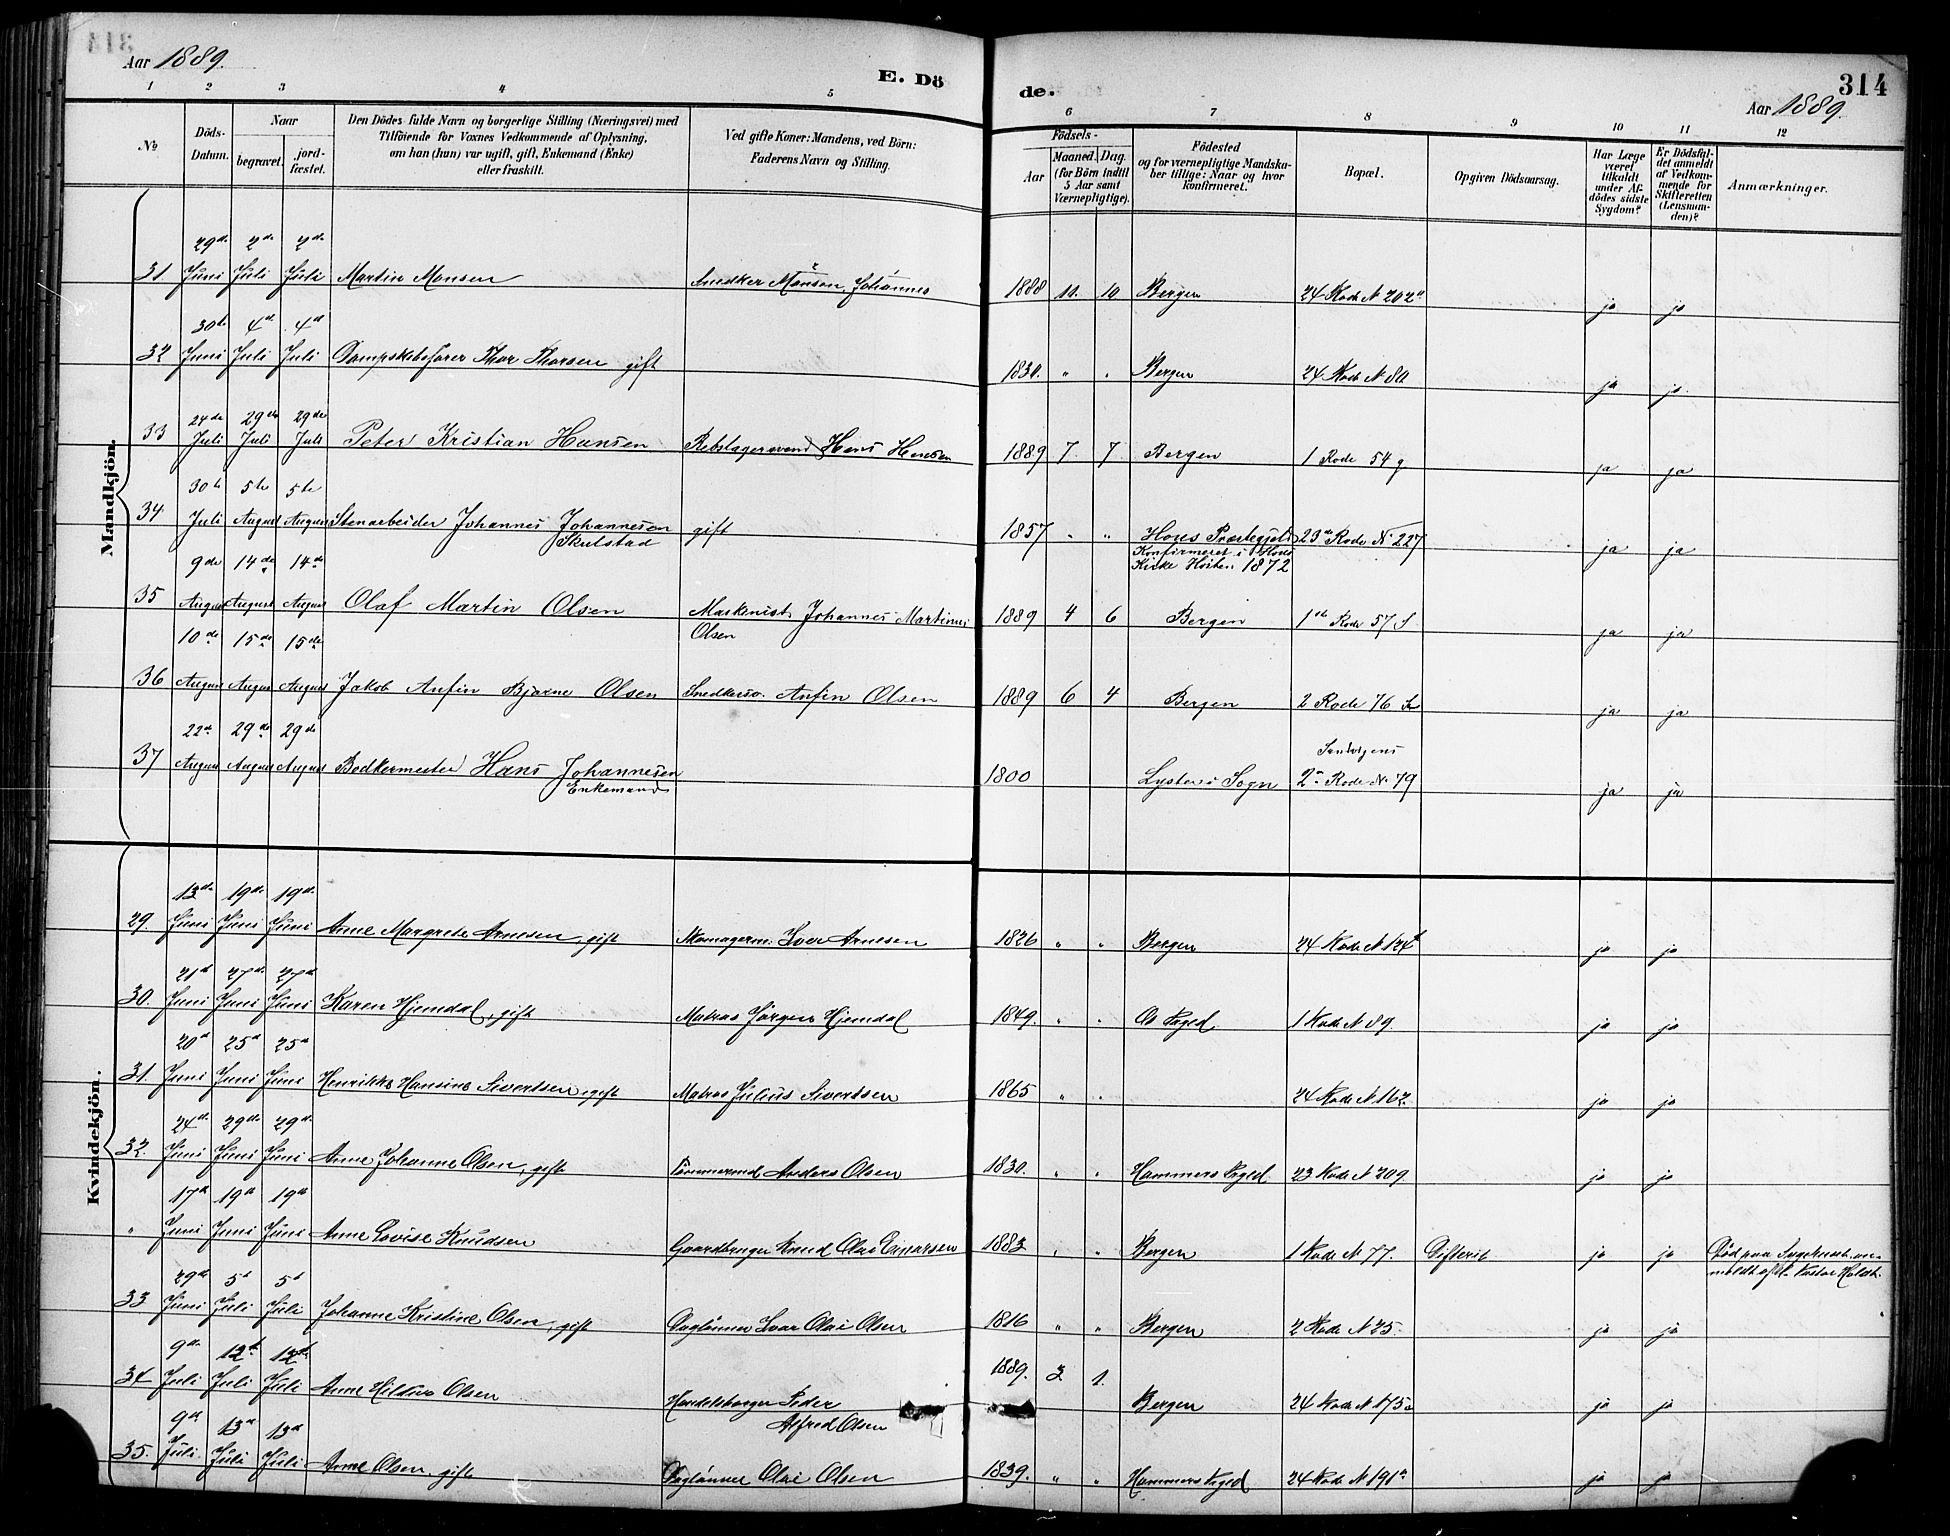 Aar 1889.
E. Dö
1 2 3 4 5
№
Döds-Datum.
Naar
begravet.
jord-fæstet.
Den Dödes fulde Navn og borgerlige Stilling (Næringsvei) med
Tilföiende for Voxnes Vedkommende af Oplysning,
om han (hun) var ugift, gift, Enkemand (Enke)
eller fraskilt.
Ved gifte Koner: Mandens, ved Börn:
Faderens Navn og Stilling.
Mandkjön.
31 29de Juni 2de Juli 2de Juli Martin Monsen Snedker Monsen, Johannes
32 30te Juni 4de Juli 4de Juli Dampskibsfører Thor Thorsen gift
33 24de Juli 29de Juli 29de Juli Peter Kristian Hansen Rebslagersvend Hans Hansen
34 30te Juli 5te August 5te August Stenarbeider Johannes Johannesen gift
Skulstad
35 9de August 14de August 14de August Olaf Martin Olsen Maskinist Johannes Martinus
Olsen
36 10de August 15de August 15de August Jakob Anfin Bjarne Olsen Snedkersv. Anfin Olsen
37 22de August 29de August 29de August Bødkermester Hans Johannesen
Enkemand
Kvindekjön.
29. 13de Juni 19de Juni 19de Juni Anne Margrete Arnesen, gift Skomagerm. Iver Arnesen
30. 21de Juni 27de Juni 27de Juni Karen Hjemdal, gift Matros Jørgen Hjemdal
31. 20de Juni 25de Juni 25de Juni Henrikke Hansine Sivertsen, gift Matros Julius Sivertsen
32. 24de Juni 29de Juni 29de Juni Anne Johanne Olsen, gift Tømmermd Anders Olsen
" 17de Juni 19de Juni 19de Juni Anne Lovise Knudsen Gaardbruger Knud Olai
33 29de Juni 5te Juli 5te Juli Johanne Kristine Olsen, gift Daglønner Ivar Olai Olsen
34 9de Juli 12te Juli 12te Juli Anne Olsen Handelsborger Peder
Alfred Olsen
35. 9de Juli 13de Juli 13de Juli Anne Olsen, gift Daglønner Olai Olsen
de.
314
Aar 1889.
6 7 8 9 10 11 12
Födsels-
Aar
Maaned. Dag.
(for Börn indtil
5 Aar samt
Værnepligtige).
Födested
og for værnepligtige Mandska-
ber tillige: Naar og hvor
konfirmeret.
Bopæl.
Opgiven Dödsaarsag.
Har Læge
været
tilkaldt
under Af-
dödes sidste
Sygdom?
Er Dödsfal-
det anmeldt
af Vedkom-
mende for
Skifteretten
(Lensman-
den)?
Anmærkninger.
1888 11. 10 Bergen 24 Rode N 202a ja ja
1830. " " Bergen 24 Rode N 80 ja ja
1889 7 7 Bergen 1 Rode 54 g ja ja
1857 " " Hous Præstegjeld 23de Rode N 227 ja ja
Konfirmeret i Hous
Kirke Høsten 1872
1889 4 6 Bergen 1ste Rode 57 ja ja
1889 6 4 Bergen 2 Rode 76 ja ja
1800 Lyster i Sogn 2 Rode N 79 ja ja
1826 " " Bergen 24 Rode N 124 ja ja
1849. " " Os Prgd 1 Rode N 89. ja ja
1865 " " 24 Rode N 162 ja ja
1830. " " Hammers Prgd. 23 Rode N 209. ja ja
1883 " " Bergen 1 Rode N 77. Difterit ja ja Død paa Sygehuset, an-
meldt af Hr. Pastor Holdt.
1816 " " Bergen 2 Rode N 25. ja ja
1889. 3. 1. Bergen 24 Rode N 175a ja ja
1839. " " Hammers Prgd 24 Rode N 191a ja ja